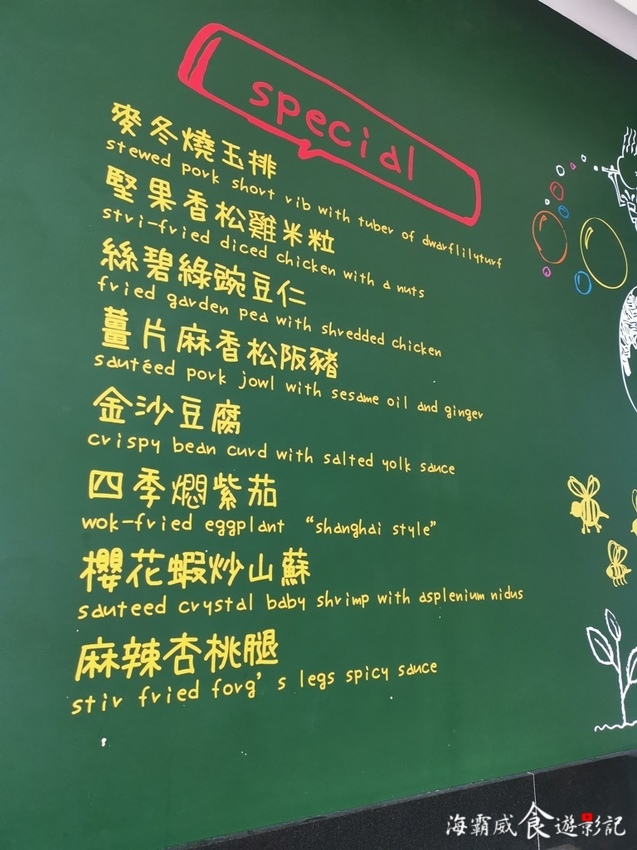 special
麥冬燒玉排
stewed pork short rib with tuber of dwarflilyturf
堅果香松雞米粒
stri-fried diced chicken with a nuts
絲碧綠豌豆仁
fried garden pea with shredded chicken
薑片麻香松阪豬
sautéed pork jowl with sesame oil and ginger
金沙豆腐
crispy bean curd with salted yolk sauce
四季燜紫茄
wok-fried eggplant “shanghai style”
櫻花蝦炒山蘇
sauteed crystal baby shrimp with asplenium nidus
麻辣杏桃腿
stir fried forg’s legs spicy sauce
海霸威食遊影記